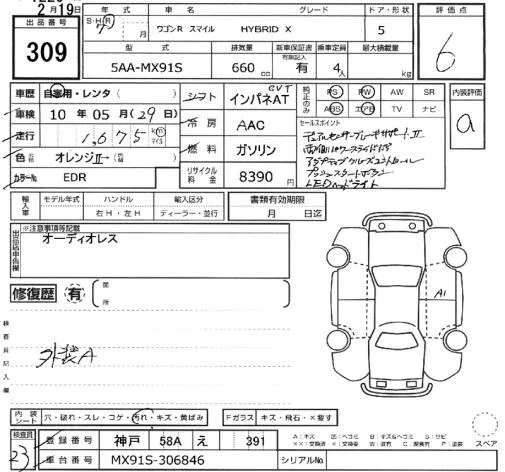 2月19日
出品番号
309
年式 車名 グレード ドア・形状
S・H・R 7 月 ワゴンR スマイル HYBRID X 5
型式 排気量 新車保証書 乗車定員 最大積載量
5AA-MX91S 660 cc 有 4人 kg
評価点
6
車歴 自家用・レンタ
車検 10年05月(29日)
走行 1,675 km マイル
色 オレンジII→
カラーNo EDR
シフト インパネAT CVT
冷房 AAC
燃料 ガソリン
リサイクル料金 8390円
純正のみ PS PW AW SR
ABS エアB TV ナビ
セールスポイント
デュアルセンサーブレーキサポートII
両側パワースライドドア
アダプティブクルーズコントロール
プッシュスタートボタン
LEDヘッドライト
内装評価
a
輸入車 モデル年式 ハンドル 輸入区分
年 右H・左H ディーラー・並行
書類有効期限
月 日迄
出品店申告欄
※注意事項等記載
オーディオレス
修復歴 有 箇所
検査員記入欄
外装A
A1
内装シート 穴・破れ・スレ・コゲ・汚れ・キズ・黄ばみ
Fガラス キズ・飛石・×要す
検査員
23
登録番号 神戸 58A え 391
車台番号 MX91S-306846
シリアルNo.
A:キズ U:ヘコミ B:キズ&ヘコミ S:サビ
スペア